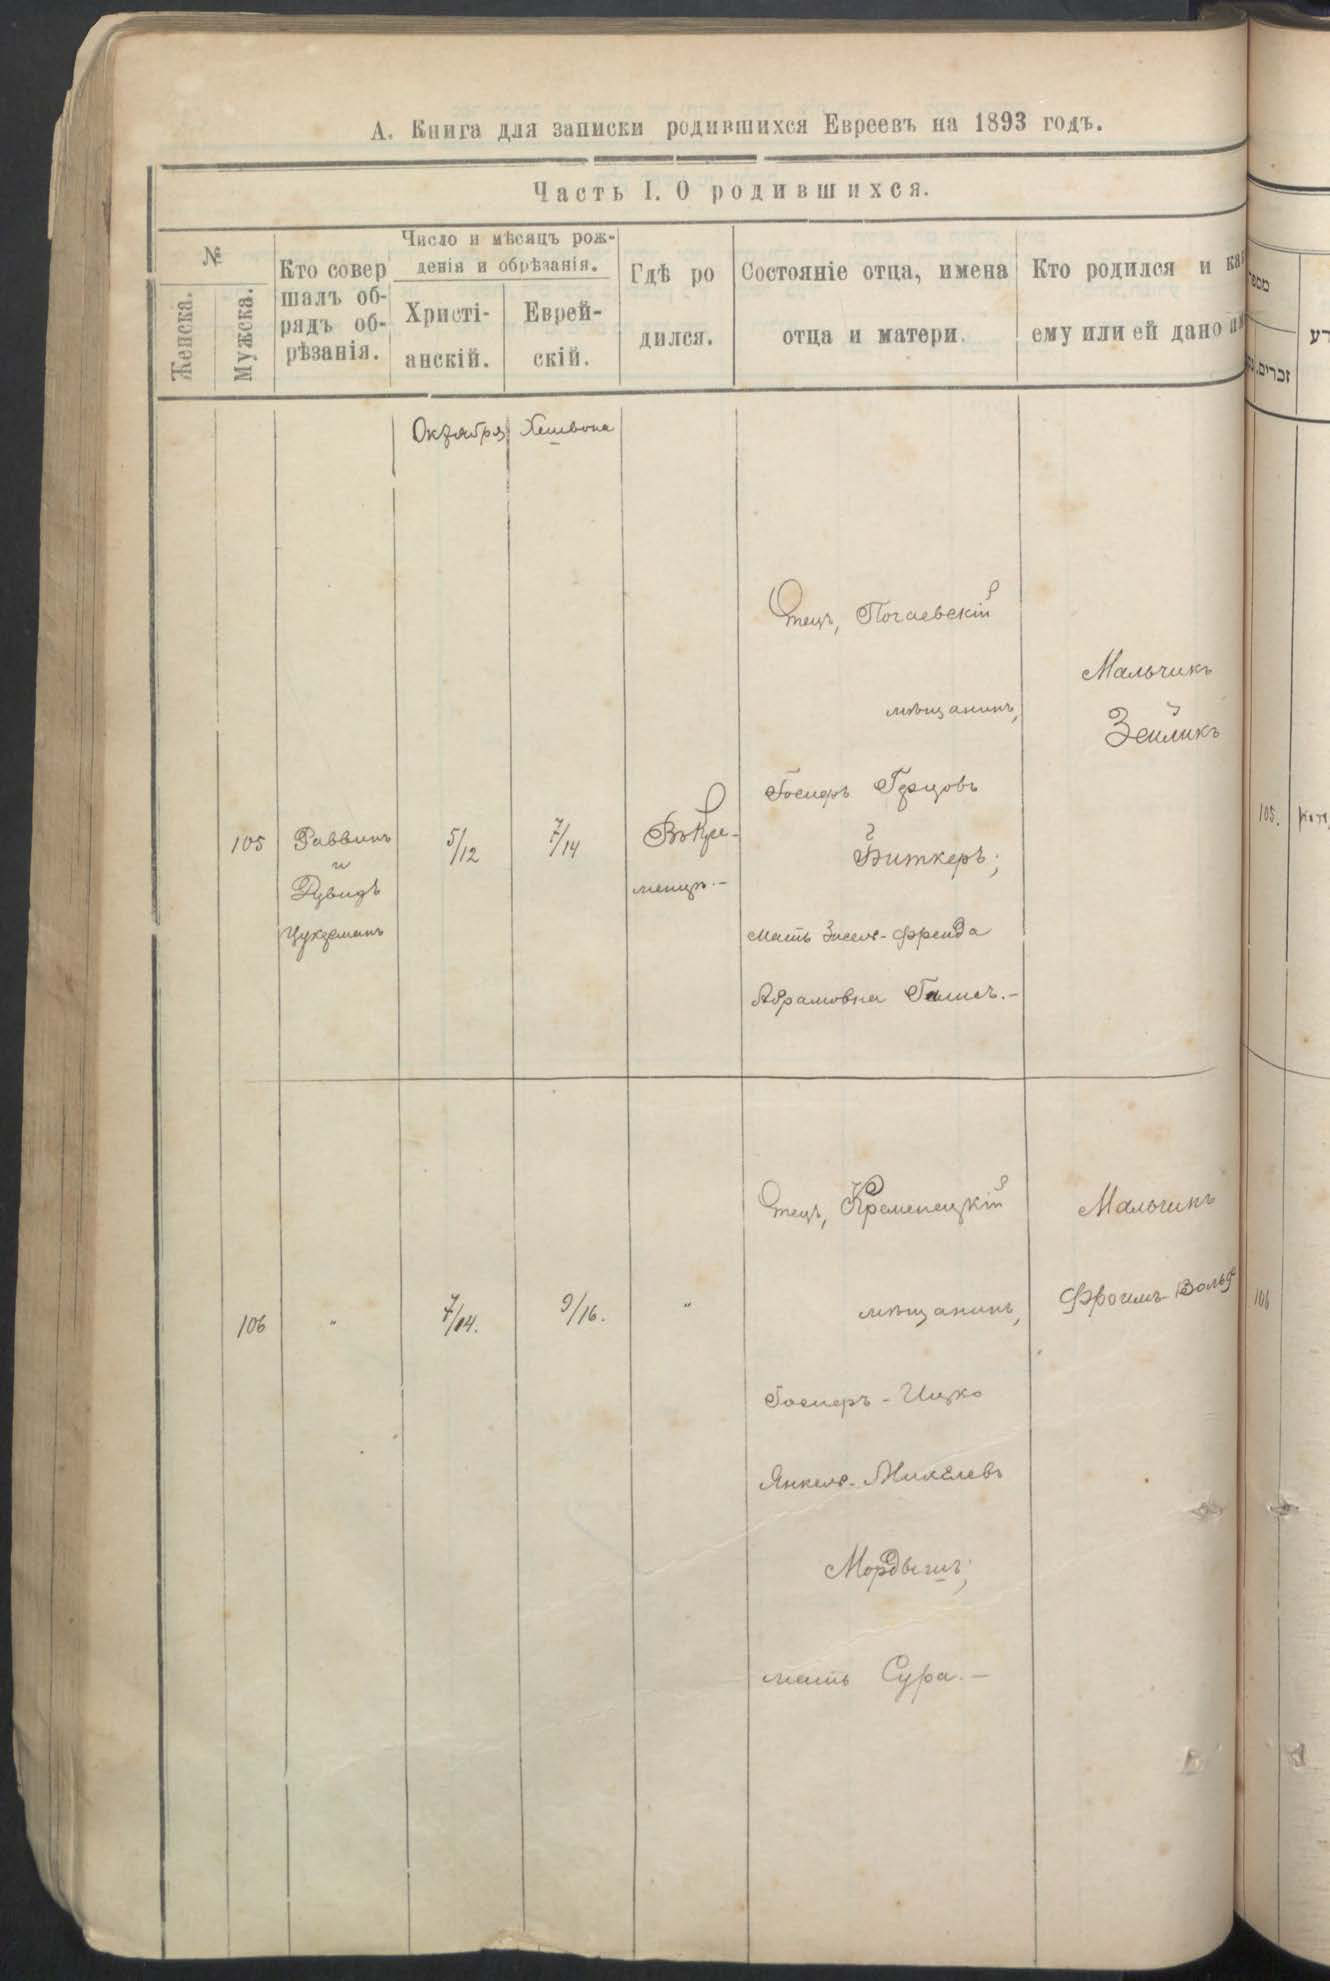 А. Книга для записки родившихся Евреевъ на 1893 годъ.
Часть I. О родившихся.
№
Женска.
Мужска.
Кто совер
шалъ об-
рядъ об-
рѣзанія.
Число и мѣсяцъ рож-
денія и обрѣзанія.
Христі-
анскій.
Еврей-
скій.
Гдѣ ро
дился.
Состояніе отца, имена
отца и матери.
Кто родился и
ему или ей дано
Октября
Хешвона
105
Раввинъ
и
Дувидъ
Цукерманъ
5/12
7/14
Въ Кре-
менцѣ.-
Отецъ, Почаевскій
мѣщанинъ,
Іосифъ Герцовъ
Биткеръ;
мать Зисель-Фрейда
Абрамовна
Мальчикъ
Зейликъ
105.
106
"
7/14.
9/16.
"
Отецъ, Кременецкій
мѣщанинъ,
Іосифъ-Ицко
Янкель-Михелевъ
Мордышъ;
мать Сура.-
Мальчикъ
Фроимъ-Вольф
106